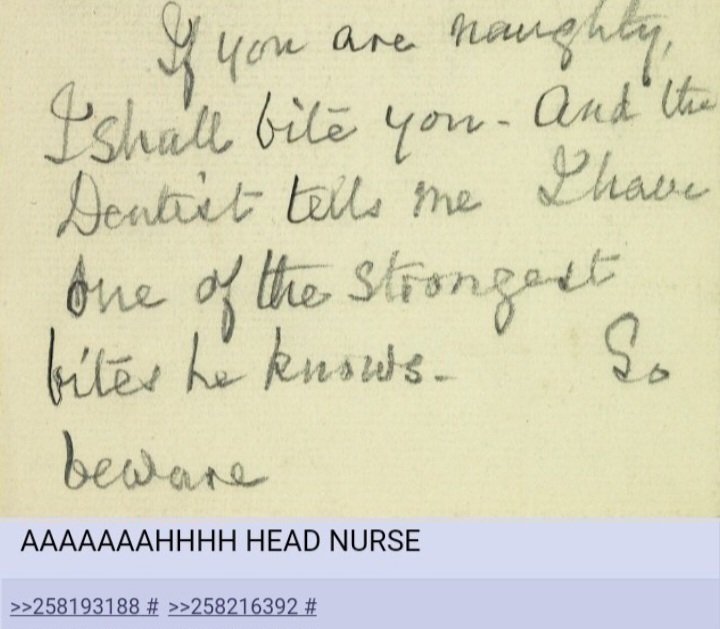 If you are naughty,
I shall bite you - And the
Dentist tells me I have
one of the strongest
bites he knows - So
beware
AAAAAAAHHHH HEAD NURSE
>>258193188 # >>258216392 #